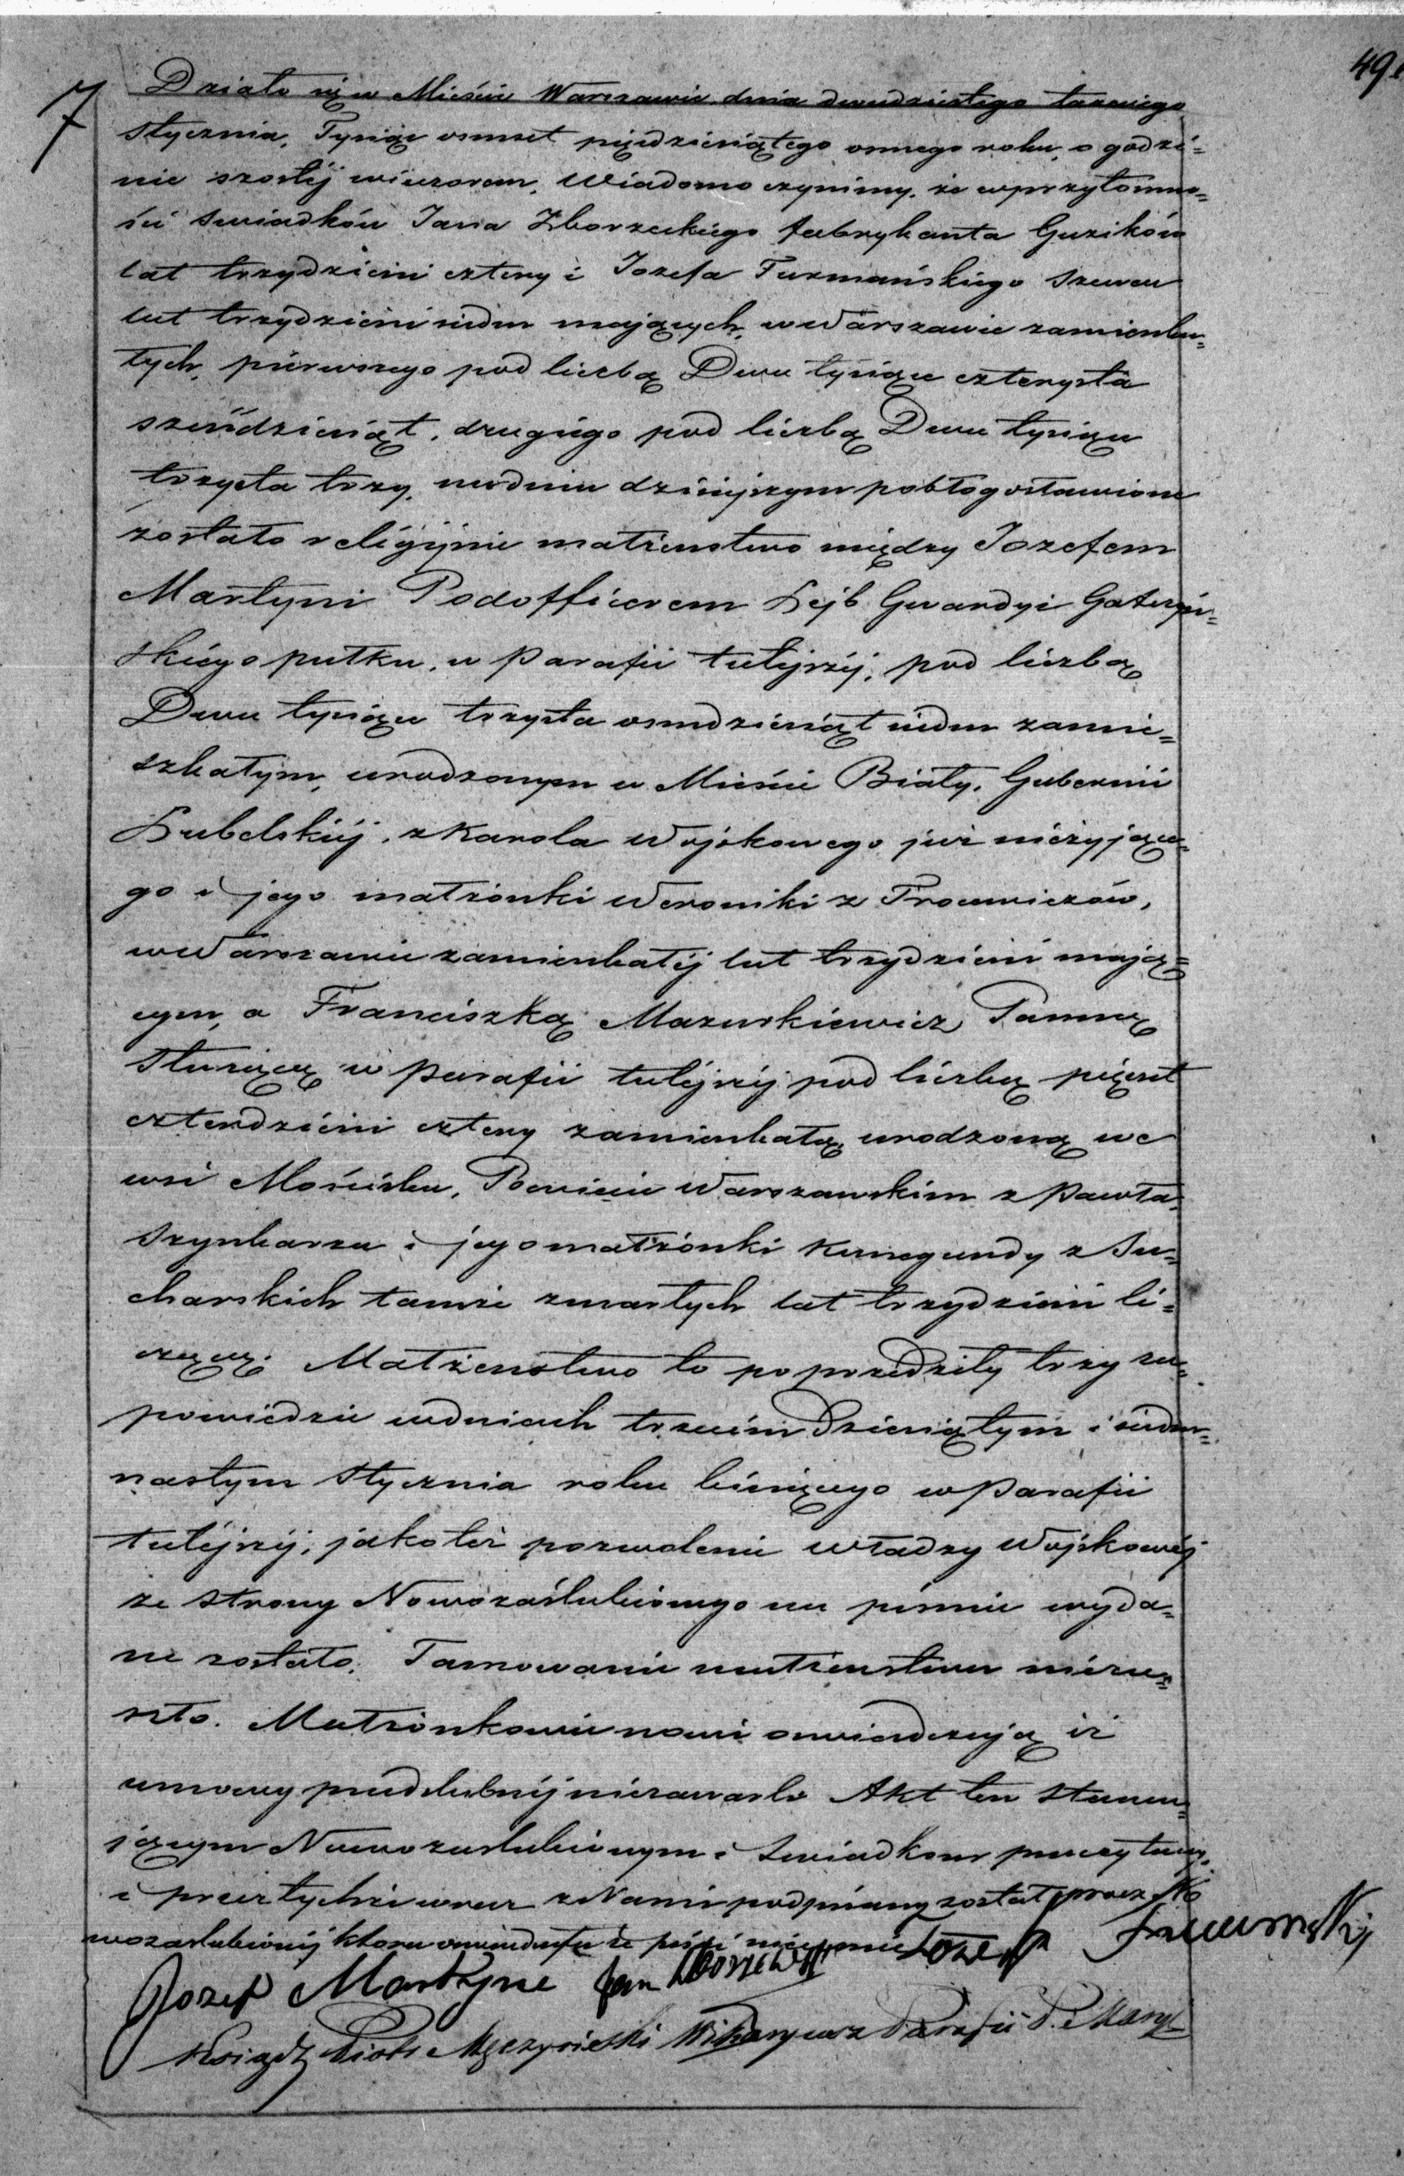 49
7
Działo się w Mieście Warszawie dnia dwudziestego trzeciego
Stycznia, Tysiąc osmset pięćdziesiątego osmego roku, o godzi=
nie szostéj wieczorem, Wiadomo czynimy, że w przytomno=
ści Swiadków Jana Zborzeckiego fabrykanta Guzików
lat trzydzieści cztery i Jozefa Furmańskiego Szewca
lat trzydzieści siedm mających, w Warszawie zamieszka=
łych, piérwszego pod liczbą Dwa tysiące czterysta
sześćdziesiąt, drugiego pod liczbą Dwa tysiące
trzysta trzy, w dniu dzisiejszym pobłogosławione
zostało religijnie małżeństwo między Jozefem
Martyni Podofficerem Lejb Gwardyi Gatczyń=
skiego pułku, w Parafii tutejszéj, pod liczbą
Dwa tysiące trzysta osmdziesiąt siedm zamie=
szkałym, urodzonym w Mieście Biały, Gubernii
Lubelskiéj, z Karola Wojskowego już nieżyjące=
go i jego małżonki Weroniki z
w Warszawie zamieszkałéj lat trzydzieści mają=
cym, a Franciszką Mazurkiewicz Panną
Służącą w Parafii tutéjszéj pod liczbą pięćset
czterdzieści cztery zamieszkałą, urodzoną we
wsi Mościska, Powiecie Warszawskim z Pawła
Szynkarza i jego małżonki Kunegundy z Su=
charskich tamże zmarłych lat trzydzieści li=
czącą. Małżeństwo to poprzedziły trzy za=
powiedzie w dniach trzecim Dziesiątym i siedm=
nastym Stycznia roku bieżącego w Parafii
tutéjszéj, jako też pozwolenie Władzy Wojskowéj
ze Strony Nowozaślubionego na piśmie wyda=
ne zostało. Tamowanie małżeństwa nieza=
szło. Małżonkowie nowi oswiadczają iż
umowy przedślubnéj niezawarli Akt ten Stawa=
jącym Nowozaslubionym i Swiadkom przeczytany,
i przez tychże wraz z Nami podpisany został procz No
wozaslubionéj która oswiadczyła że pisać nieumie Jozef
Jozef Martyne Jan
Ksiądz Piotr Męczyński Wikaryusz Parafii P. Maryi